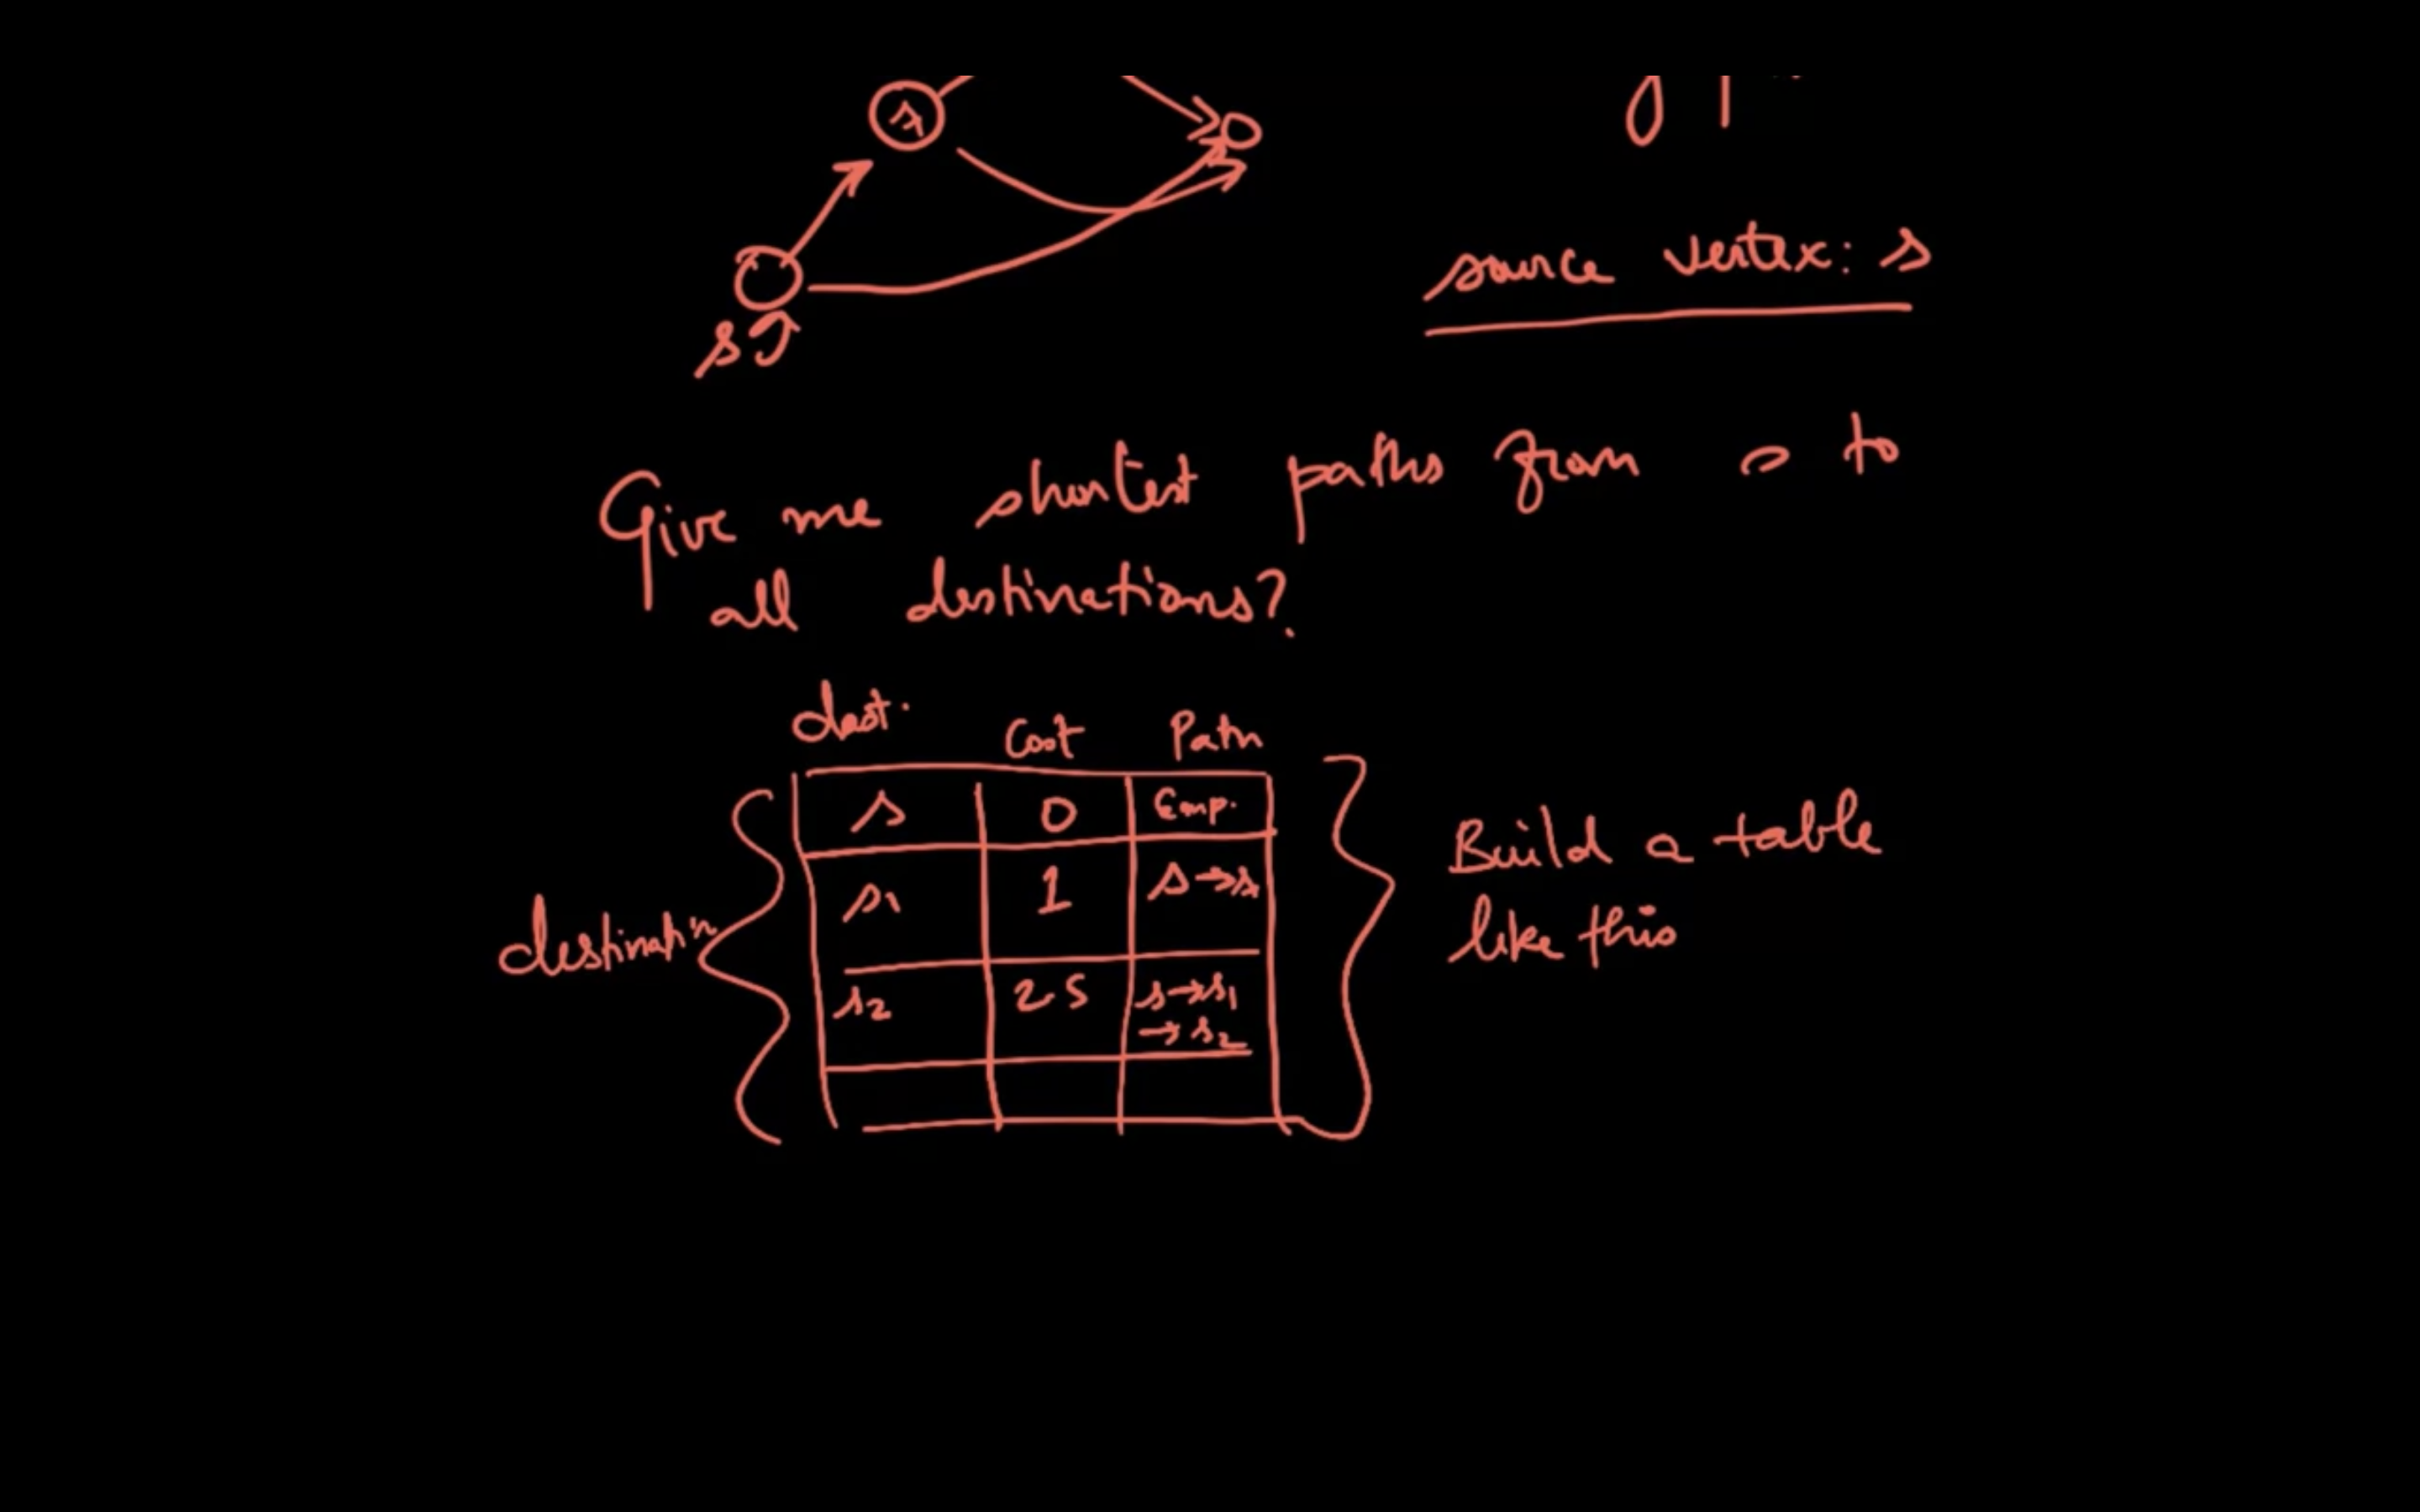 source vertex: s
s
Give me shortest paths from s to
all destinations?
dest. Cost Path
s 0 Emp.
s1 1 s→s1
s2 25 s→s1
→s2
destination
Build a table
like this